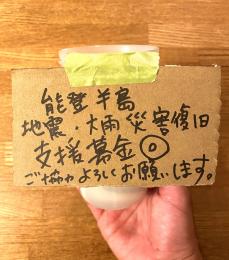 能登半島
地震・大雨災害復旧
支援募金◎
ご協力よろしくお願いします。